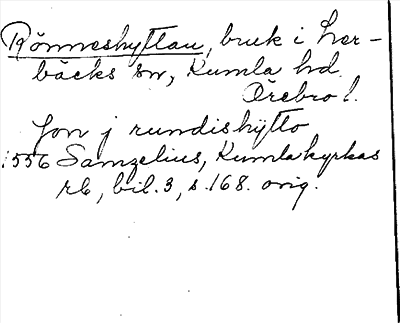 Rönneshyttan, bruk i Ler-
bäcks sn, Kumla hd.
Örebro l.
Jon j rundishÿtto
1556 Samzelius, Kumla kyrkas
rb, bil. 3, s. 168. orig.